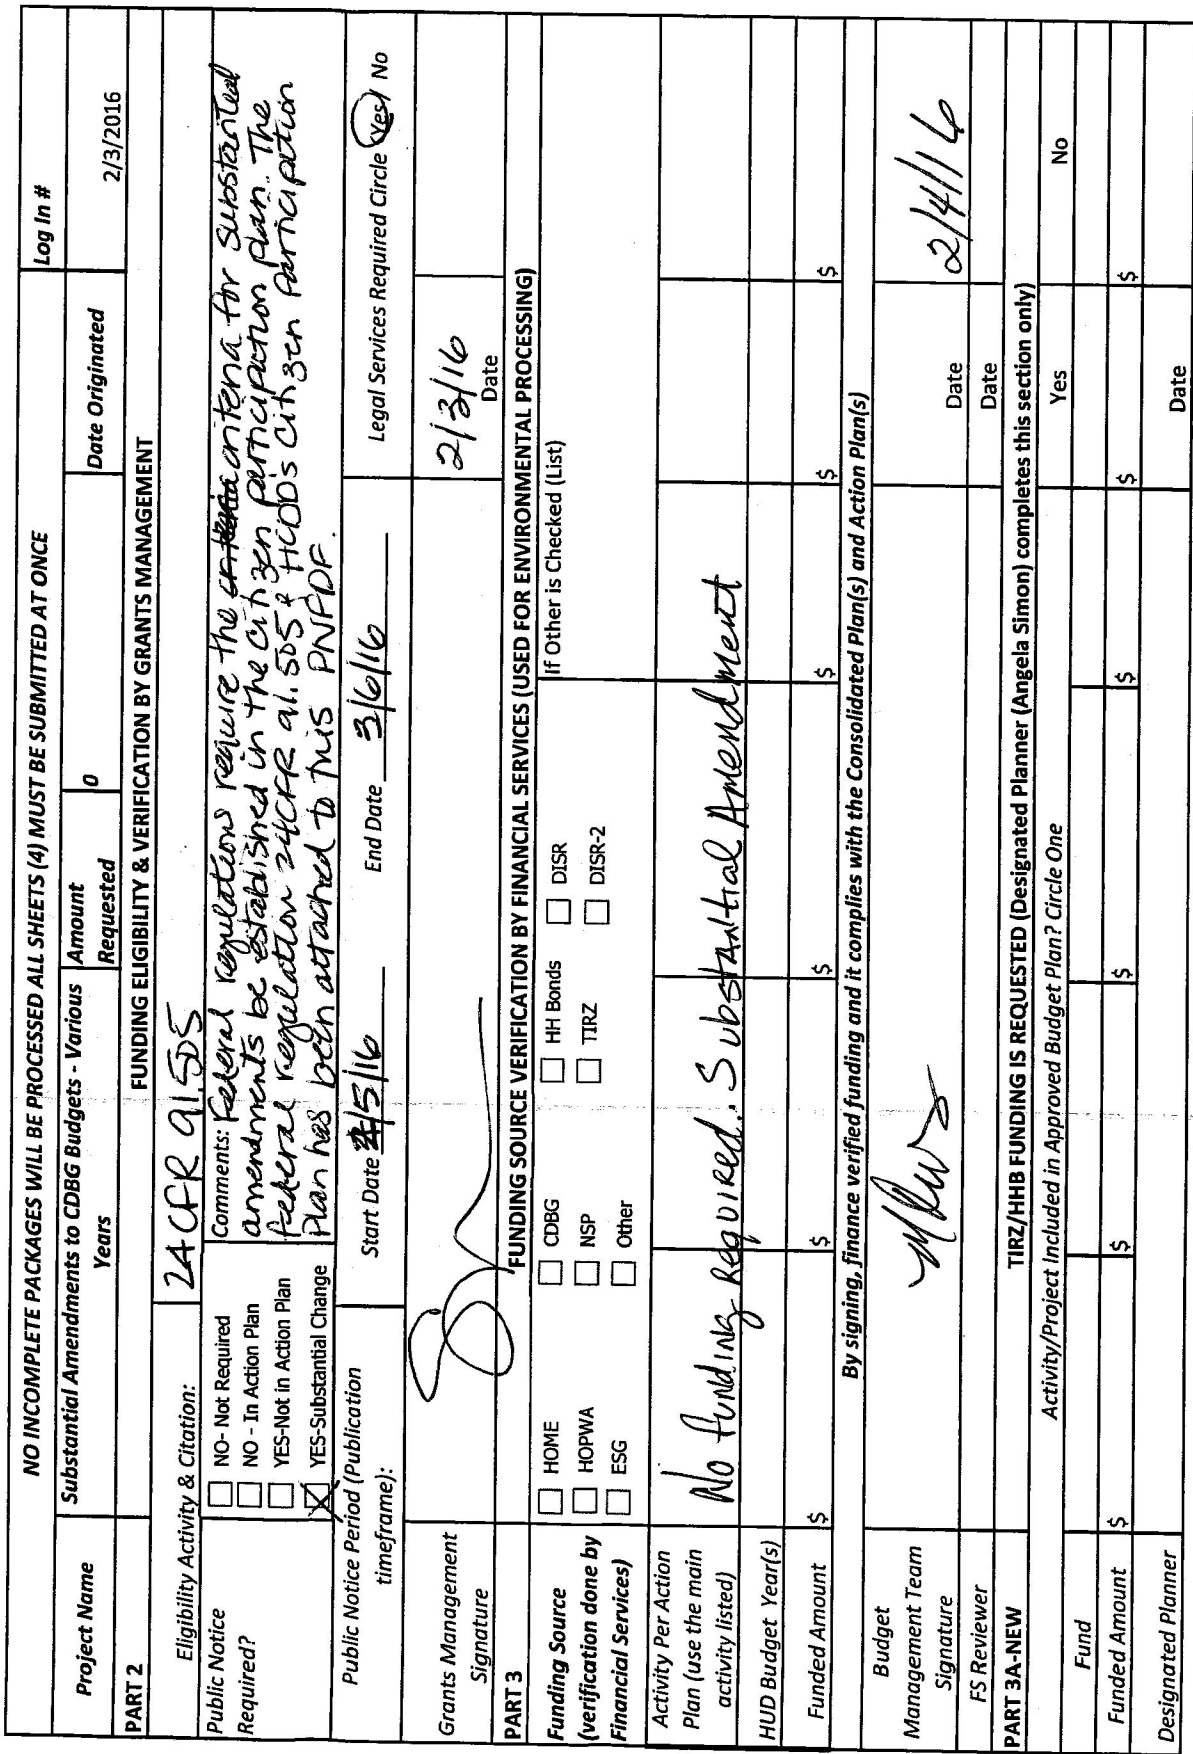 NO INCOMPLETE PACKAGES WILL BE PROCESSED ALL SHEETS (4) MUST BE SUBMITTED AT ONCE
Log In #
Project Name
Substantial Amendments to CDBG Budgets - Various Years
Amount Requested
0
Date Originated
2/3/2016
PART 2
FUNDING ELIGIBILITY & VERIFICATION BY GRANTS MANAGEMENT
Eligibility Activity & Citation:
24 CFR 91.505
Public Notice Required?
☐ NO- Not Required
☐ NO - In Action Plan
☐ YES-Not in Action Plan
☒ YES-Substantial Change
Comments: Federal regulations require the criteria for substantial
amendments be established in the citizen participation plan. The
federal regulation 24CFR 91.505 & HCDD's citizen participation
plan has been attached to this PNPDF.
Public Notice Period (Publication timeframe):
Start Date 2/5/16
End Date 3/6/16
Legal Services Required Circle Yes/ No
Grants Management Signature
2/3/16
Date
PART 3
FUNDING SOURCE VERIFICATION BY FINANCIAL SERVICES (USED FOR ENVIRONMENTAL PROCESSING)
Funding Source (verification done by Financial Services)
☐ HOME ☐ CDBG ☐ HH Bonds ☐ DISR
☐ HOPWA ☐ NSP ☐ TIRZ ☐ DISR-2
☐ ESG ☐ Other
If Other is Checked (List)
Activity Per Action Plan (use the main activity listed)
No funding required. Substantial Amendment
HUD Budget Year(s)
Funded Amount
$ $ $ $ $ $
By signing, finance verified funding and it complies with the Consolidated Plan(s) and Action Plan(s)
Budget Management Team Signature
Date
2/4/16
FS Reviewer
Date
PART 3A-NEW
TIRZ/HHB FUNDING IS REQUESTED (Designated Planner (Angela Simon) completes this section only)
Activity/Project Included in Approved Budget Plan? Circle One
Yes
No
Fund
Funded Amount
$ $ $ $ $ $
Designated Planner
Date